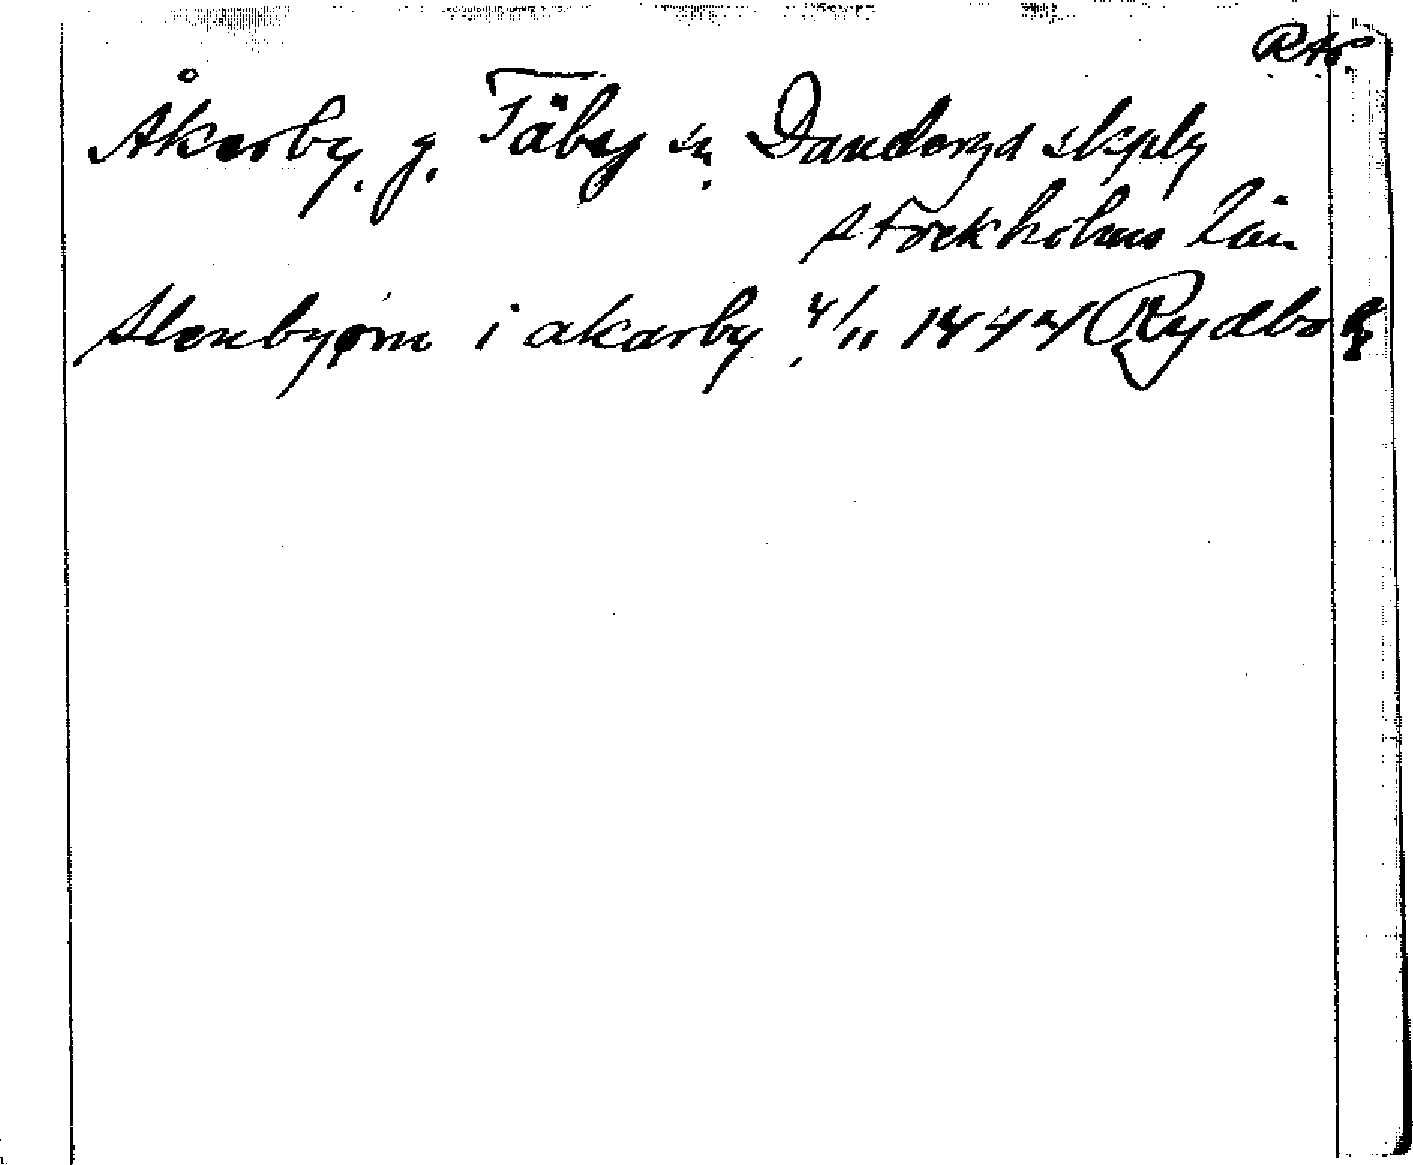 RAp.
Åkerby, g. Täby sn, Danderyd skplg
Stockholms län
Stenbyørn i akarby 4/11 1444 Rydbo